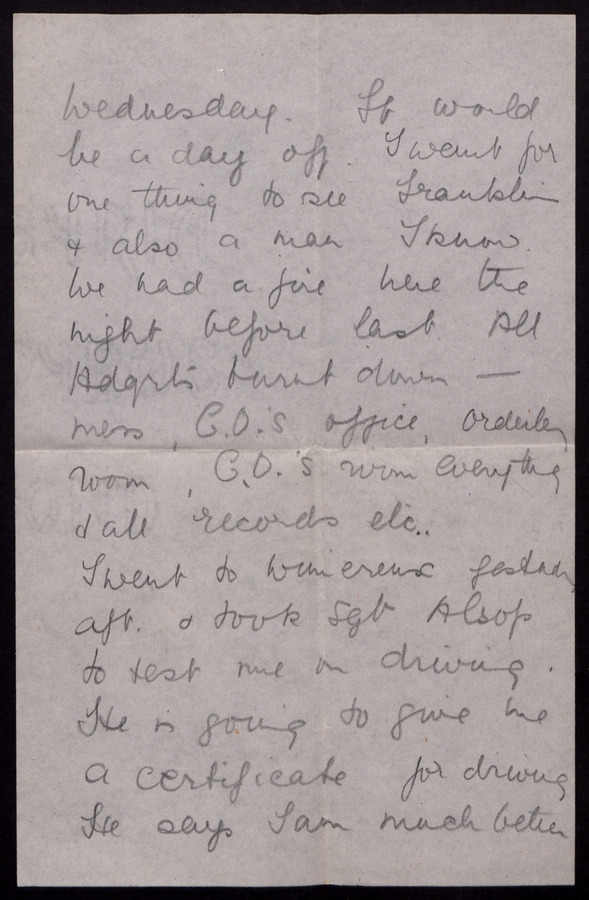 Wednesday. It would
be a day off. I want for
one thing to see Franklin
& also a man I know.
We had a fire here the
night before last. All
Hdqrts burnt down —
mess, C.O.'s office, orderley
room, C.O.'s room everything
& all records etc..
I went to Wimereux yesterday
aft. & took Sgt Alsop
to test me in driving.
He is going to give me
a certificate for driving
He says I am much better